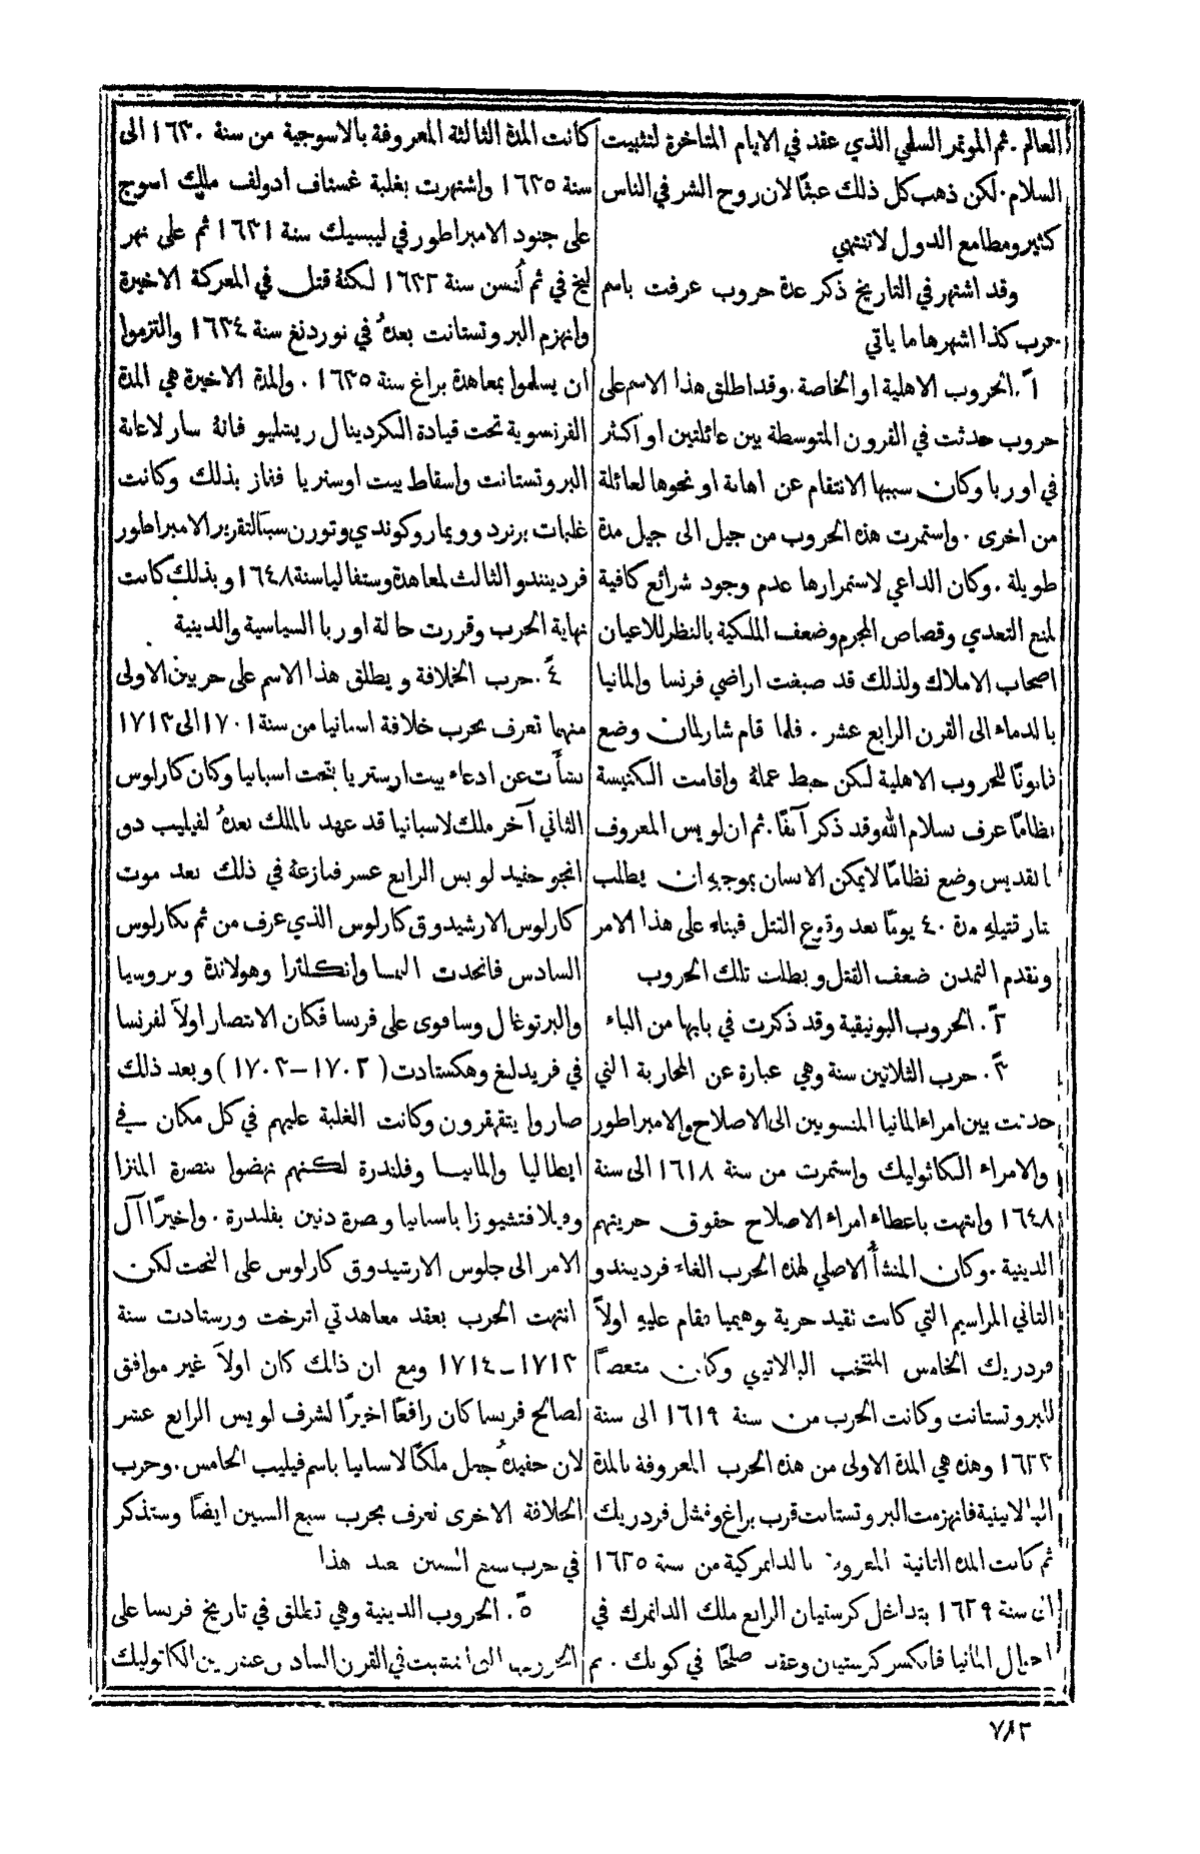 العالم. ثم الموتمر السلمي الذي عقد في الايام المتاخرة لتثبيت
السلام. لكن ذهب كل ذلك عبثًا لان روح الشر في الناس
كثير ومطامع الدول لا تنتهي
وقد اشتهر في التاريخ ذكر عدة حروب عرفت باسم
حرب كذا اشهرها ما ياتي
١ً. الحروب الاهلية او الخاصة. وقد اطلق هذا الاسم على
حروب حدثت في القرون المتوسطة بين عائلتين او اكثر
في اوربا وكان سببها الانتقام عن اهانة او نحوها لعائلة
من اخرى. واستمرت هذه الحروب من جيل الى جيل مدة
طويلة. وكان الداعي لاستمرارها عدم وجود شرائع كافية
لمنع التعدي وقصاص المجرم وضعف الملكية بالنظر للاعيان
اصحاب الاملاك ولذلك قد صبغت اراضي فرنسا والمانيا
بالدماء الى القرن الرابع عشر. فلما قام شارلمان وضع
قانونًا للحروب الاهلية لكن حبط عملهُ واقامت الكنيسة
نظامًا عرف بسلام الله وقد ذكر آنفًا. ثم ان لويس المعروف
بالقديس وضع نظامًا لا يمكن الانسان بموجبهِ ان يطلب
بثار قتيلهِ مدة ٤٠ يومًا بعد وقوع القتل فبناء على هذا الامر
وتقدم التمدن ضعف القتل وبطلت تلك الحروب
٢ً. الحروب البونيقية وقد ذكرت في بابها من الباء
٣ً. حرب الثلاثين سنة وهي عبارة عن المحاربة التي
حدثت بين امراء المانيا المنسوبين الى الاصلاح والامبراطور
والامراء الكاثوليك واستمرت من سنة ١٦١٨ الى سنة
١٦٤٨ وانتهت باعطاء امراء الاصلاح حقوق حريتهم
الدينية. وكان المنشأ الاصلي لهذه الحرب الغاء فردينندو
الثاني المراسيم التي كانت تقيد حرية بوهيميا فقام عليهِ اولاً
فردريك الخامس المنتخب البالاتيني وكان متعصبًا
للبروتستانت وكانت الحرب من سنة ١٦١٩ الى سنة
١٦٢٣ وهذه هي المدة الاولى من هذه الحرب المعروفة بالمدة
البالاتينية فانهزمت البروتستانت قرب براغ وفشل فردريك
ثم كانت المدة الثانية المعروفة بالدانمركية من سنة ١٦٢٥
الى سنة ١٦٢٩ بتداخل كرستيان الرابع ملك الدانمرك في
احوال المانيا فانكسر كرستيان وعقد صلحًا في لوبك. ثم
كانت المدة الثالثة المعروفة بالاسوجية من سنة ١٦٣٠ الى
سنة ١٦٣٥ واشتهرت بغلبة غستاف ادولف ملك اسوج
على جنود الامبراطور في ليبسيك سنة ١٦٣١ ثم على نهر
ليخ في ثم لُتسن سنة ١٦٣٢ لكنهُ قتل في المعركة الاخيرة
وانهزم البروتستانت بعدهُ في نوردلنغ سنة ١٦٣٤ والتزموا
ان يسلموا بمعاهدة براغ سنة ١٦٣٥. والمدة الاخيرة هي المدة
الفرنسوية تحت قيادة الكردينال ريشليو فانهُ سار لاعانة
البروتستانت واسقاط بيت اوستريا ففاز بذلك وكانت
غلبات برنرد وويمار وكوندي وتورن سببًا لتقرير الامبراطور
فردينندو الثالث لمعاهدة وستفاليا سنة ١٦٤٨ وبذلك كانت
نهاية الحرب وقررت حالة اوربا السياسية والدينية
٤ً. حرب الخلافة ويطلق هذا الاسم على حربين الاولى
منهما تعرف بحرب خلافة اسبانيا من سنة ١٧٠١ الى ١٧١٣
نشأت عن ادعاء بيت اوستريا بتخت اسبانيا وكان كارلوس
الثاني آخر ملك لاسبانيا قد عهد بالملك بعدهُ لفيليب دو
انجو حفيد لويس الرابع عشر فنازعهُ في ذلك بعد موت
كارلوس الارشيدوق كارلوس الذي عرف من ثم بكارلوس
السادس فاتحدت النمسا وانكلترا وهولاندة وبروسيا
والبرتوغال وسافوى على فرنسا فكان الانتصار اولاً لفرنسا
في فريدلنغ وهكستادت (١٧٠٢–١٧٠٣) وبعد ذلك
صاروا يتقهقرون وكانت الغلبة عليهم في كل مكان في
ايطاليا والمانيا وفلندرة لكنهم نهضوا بنصرة المنزا
وفيلا فتشيوزا باسبانيا ونصرة دنين بفلندرة. واخيرًا آل
الامر الى جلوس الارشيدوق كارلوس على التخت لكن
انتهت الحرب بعقد معاهدتي اترخت ورستادت سنة
١٧١٣–١٧١٤ ومع ان ذلك كان اولاً غير موافق
لصالح فرنسا كان رافعًا اخيرًا لشرف لويس الرابع عشر
لان حفيدهُ جعل ملكًا لاسبانيا باسم فيليب الخامس. وحرب
الخلافة الاخرى تعرف بحرب سبع السنين ايضًا وستذكر
في حرب سبع السنين بعد هذا
٥ً. الحروب الدينية وهي تطلق في تاريخ فرنسا على
الحروب التي انتشبت في القرن السادس عشر بين الكاثوليك
٧٨٣